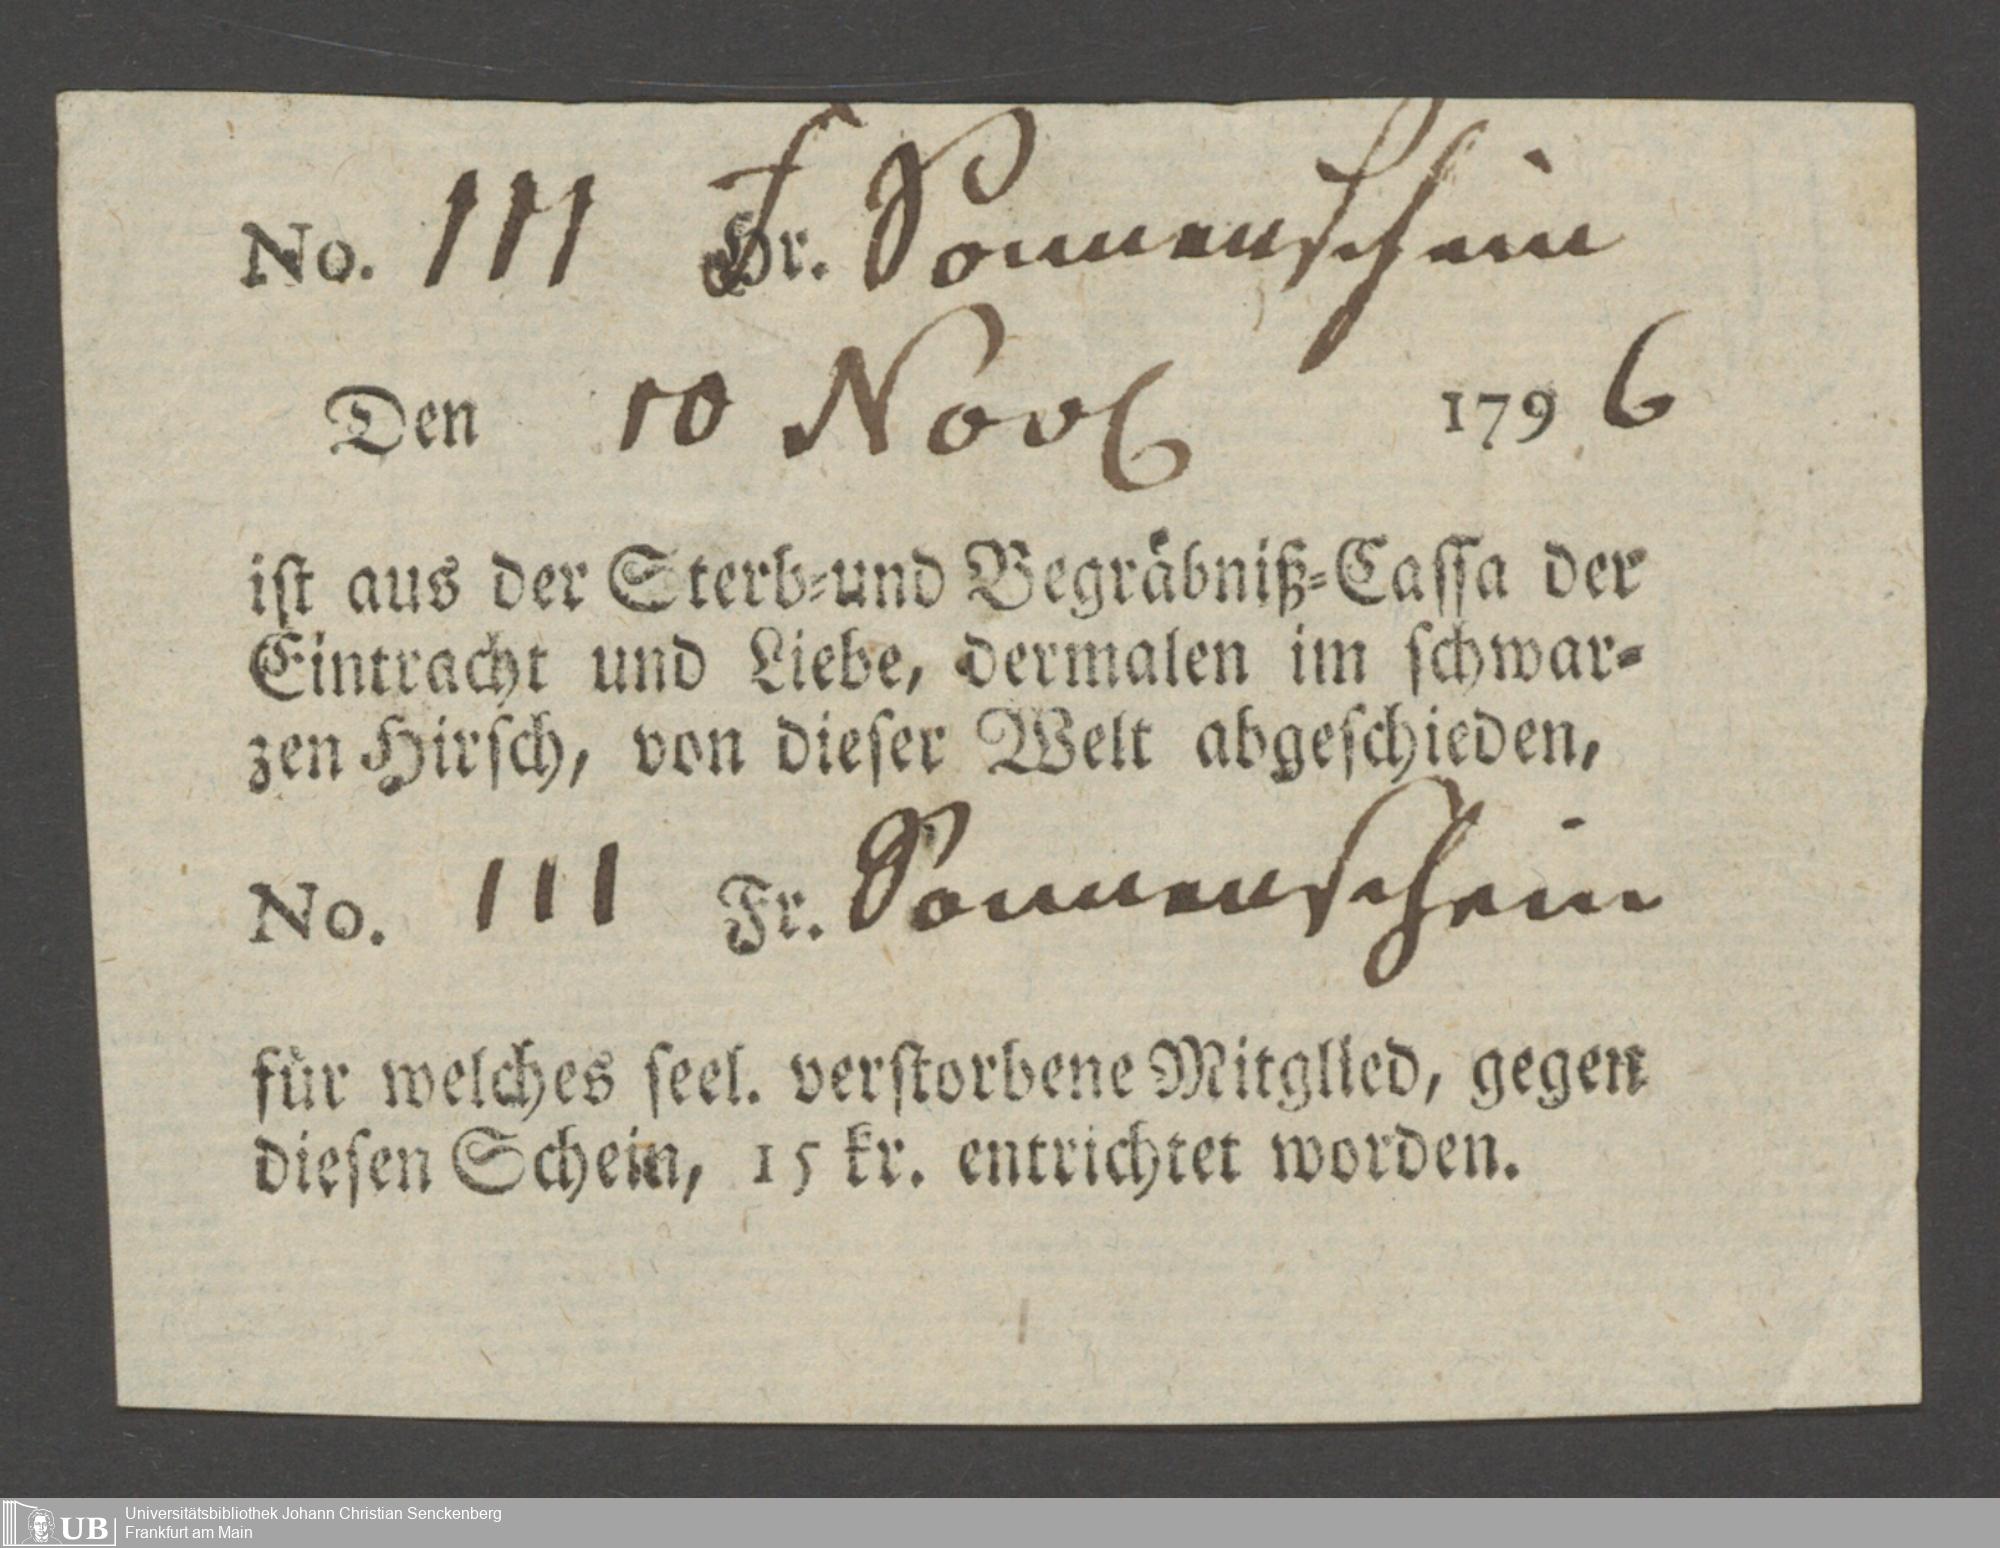 No. 111 Fr. Sonnenschein
Den 10 Novb 1796
iſt aus der Sterb-und Begräbniß-Caſſa der
Eintracht und Liebe, dermalen im ſchwar-
zen Hirſch, von dieſer Welt abgeſchieden,
No. 111 Fr. Sonnenschein
für welches ſeel. verſtorbene Mitglied, gegen
dieſen Schein, 15 kr. entrichtet worden.
UB
Universitätsbibliothek Johann Christian Senckenberg
Frankfurt am Main